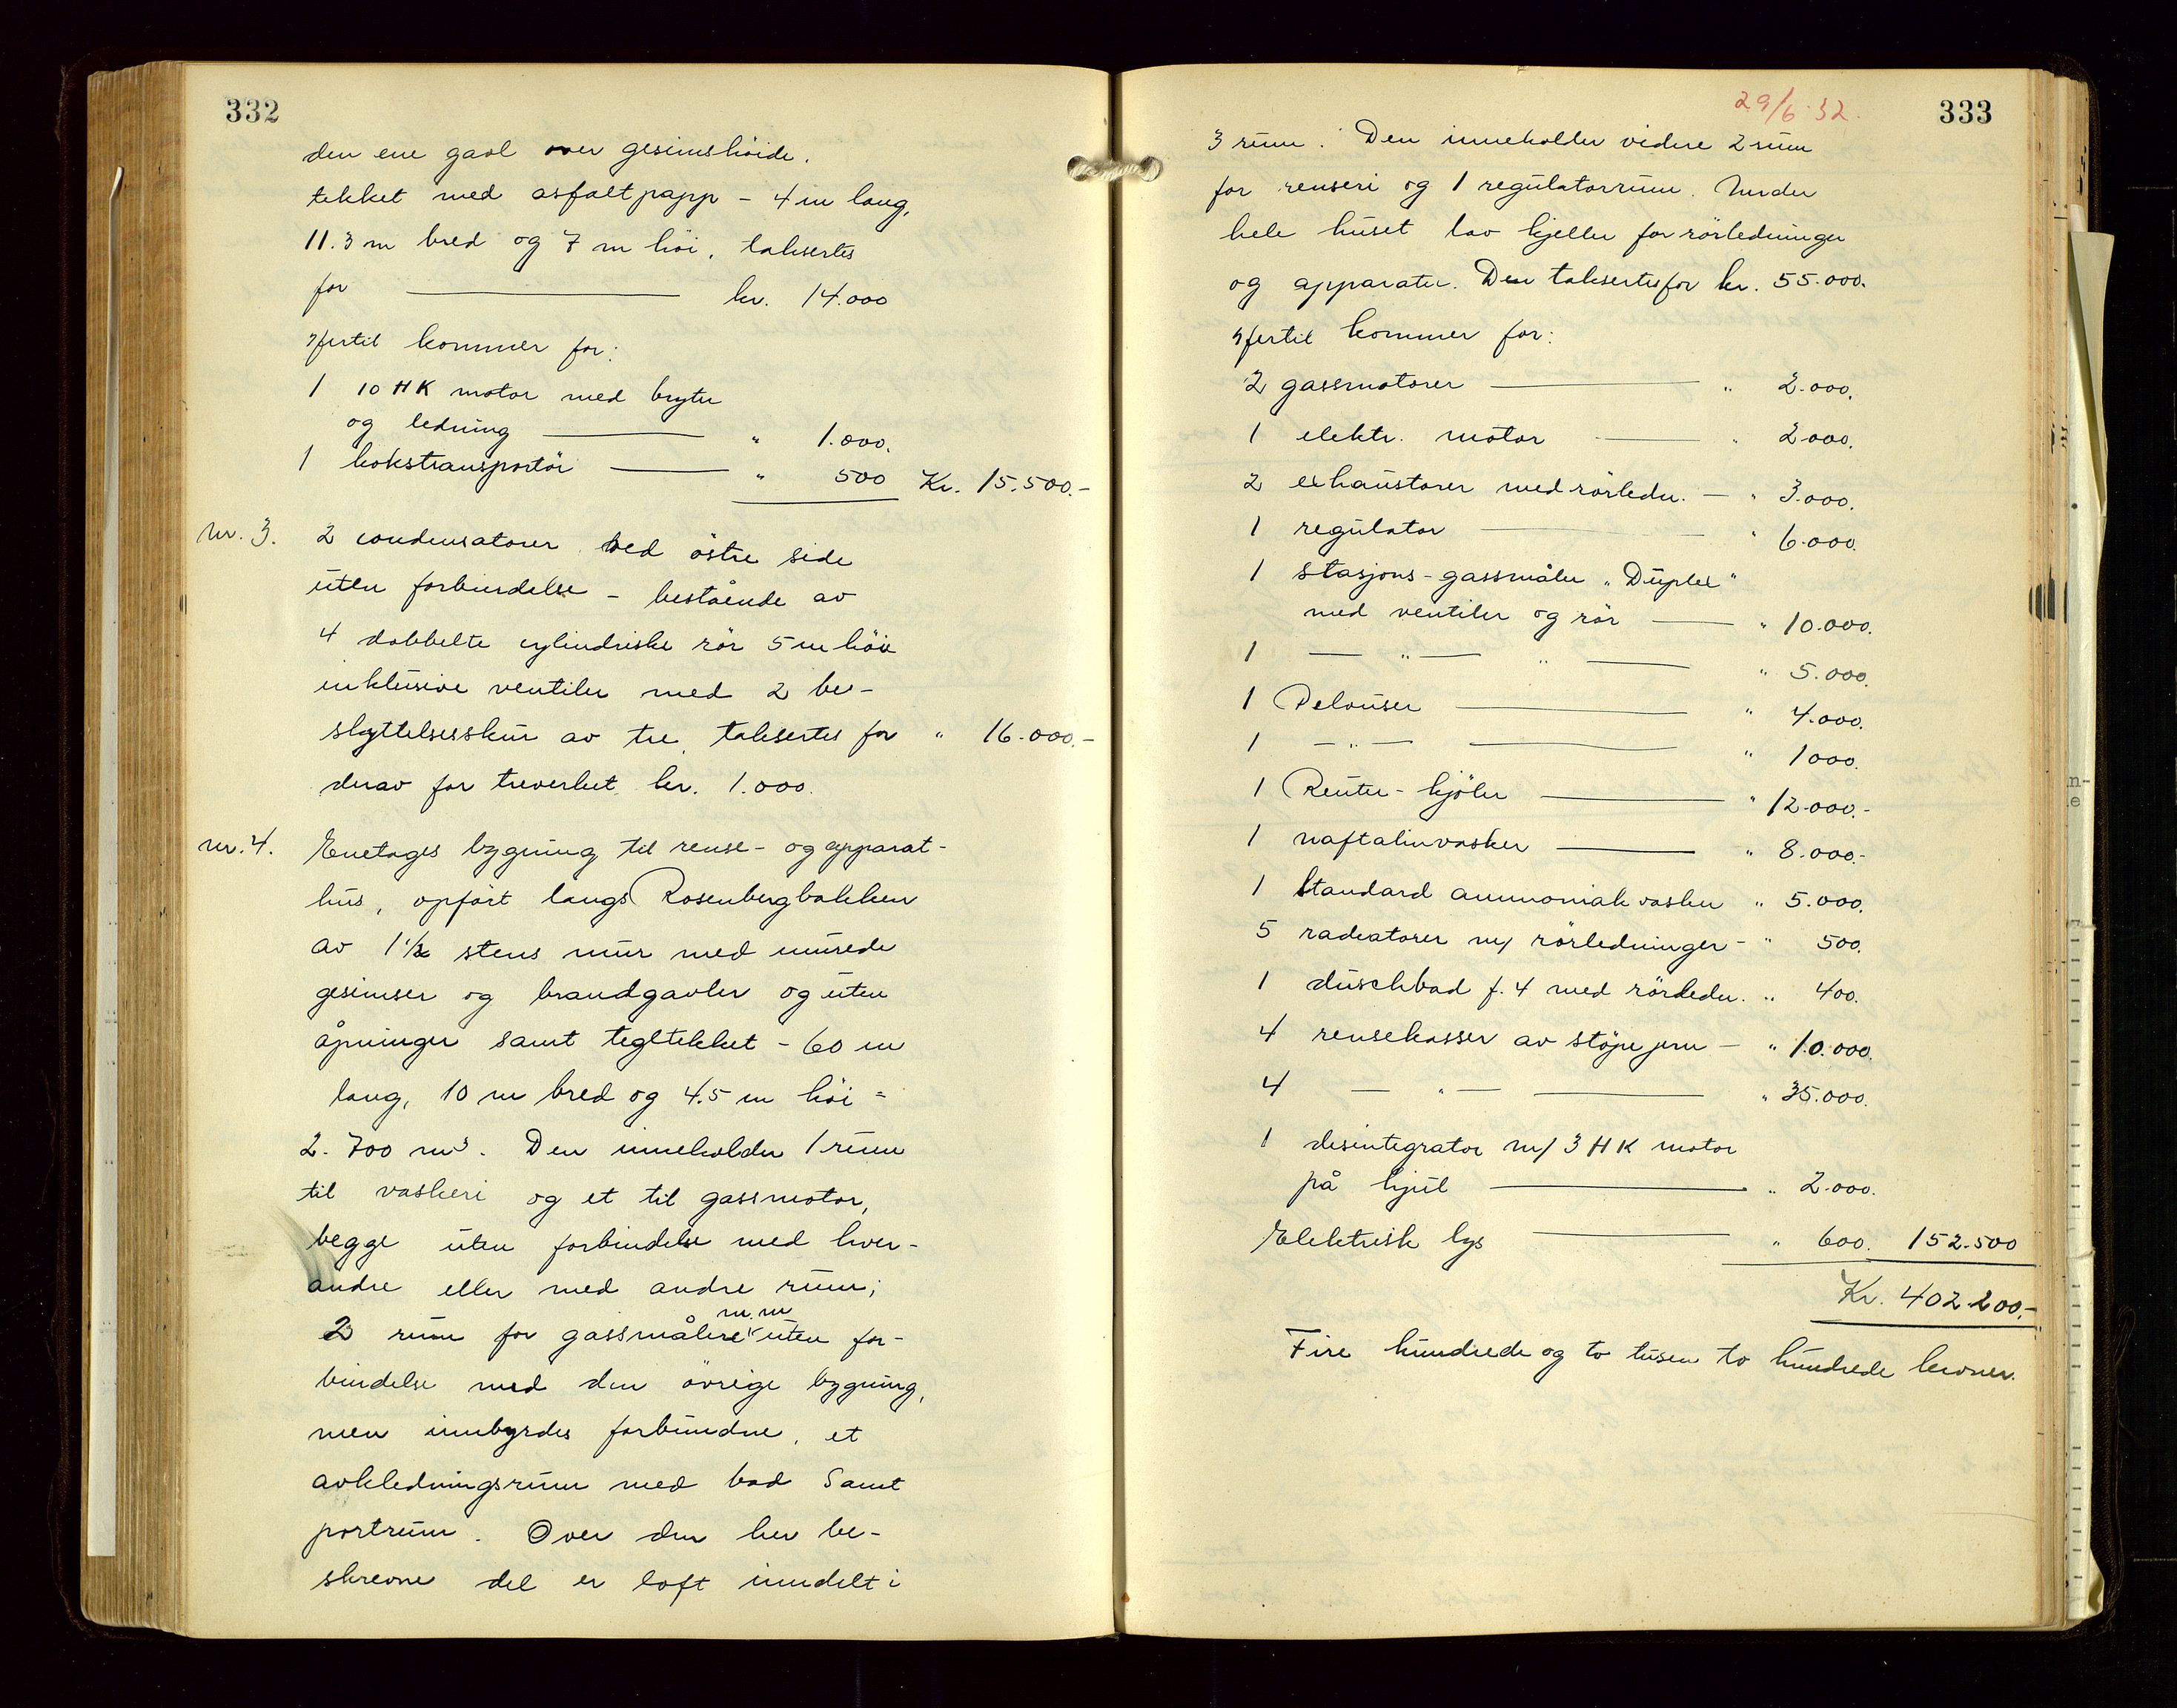 332
den ene gavl over gesimshöide.
tekket med asfaltpapp - 4 m lang,
11.3 m bred og 7 m höi, taksertes
for ——— kr. 14.000
Hertil kommer for:
1 10 HK motor med bryter
og ledning ——— " 1.000.
1 kokstransportör ——— " 500 Kr. 15.500.-
Nr. 3. 2 condensatorer ved östre side
uten forbindelse - bestående av
4 dobbelte cylindriske rör 5 m höie
inklusive ventiler med 2 be-
skyttelsesskur av tre, taksertes for " 16.000.-
derav for treverket kr. 1.000.
nr. 4. Enetages bygning til rense- og apparat-
hus, opfört langs Rosenbergbakken
av 1 1/2 stens mur med murede
gesimser og brandgavler og uten
åpninger samt tegltekket - 60 m
lang, 10 m bred og 4.5 m höi =
2.700 m³. Den inneholder 1 rum
til vaskeri og et til gassmotor,
begge uten forbindelse med hver-
andre eller med andre rum;
2 rum for gassmålere m.m uten for-
bindelse med den övrige bygning,
men innbyrdes forbundne, et
avkledningsrum med bad samt
portrum. Over den her be-
skrevne del er loft inndelt i
29/6.32.
333
3 rum. Den inneholder videre 2 rum
for renseri og 1 regulatorrum. Under
hele huset lav kjeller for rörledninger
og apparater. Den taksertes for kr. 55.000.
Hertil kommer for:
2 gassmotorer ——— " 2.000.
1 elektr. motor ——— " 2000.
2 exhaustorer med rörledn. — " 3.000.
1 regulator ——— " 6.000.
1 stasjons-gassmåler "Duplex"
med ventiler og rör ——— " 10.000.
1 — " — " ——— " 5.000.
1 Pelouser ——— " 4.000.
1 — " — ——— " 1000.
1 Reuter-kjöler ——— " 12.000.-
1 naftalinvasker ——— " 8.000.-
1 Standard ammoniakvasker " 5.000.
5 radiatorer m/ rörledninger - " 500.
1 duschbad f. 4 med rörledn. " 400.
4 rensekasser av stöpejern — " 10.000.
4 — " — ——— " 35.000.
1 desintegrator m/ 3 HK motor
på hjul ——— " 2.000.
Elektrisk lys ——— " 600. 152.500
Kr. 402.200.-
Fire hundrede og to tusen to hundrede kroner.